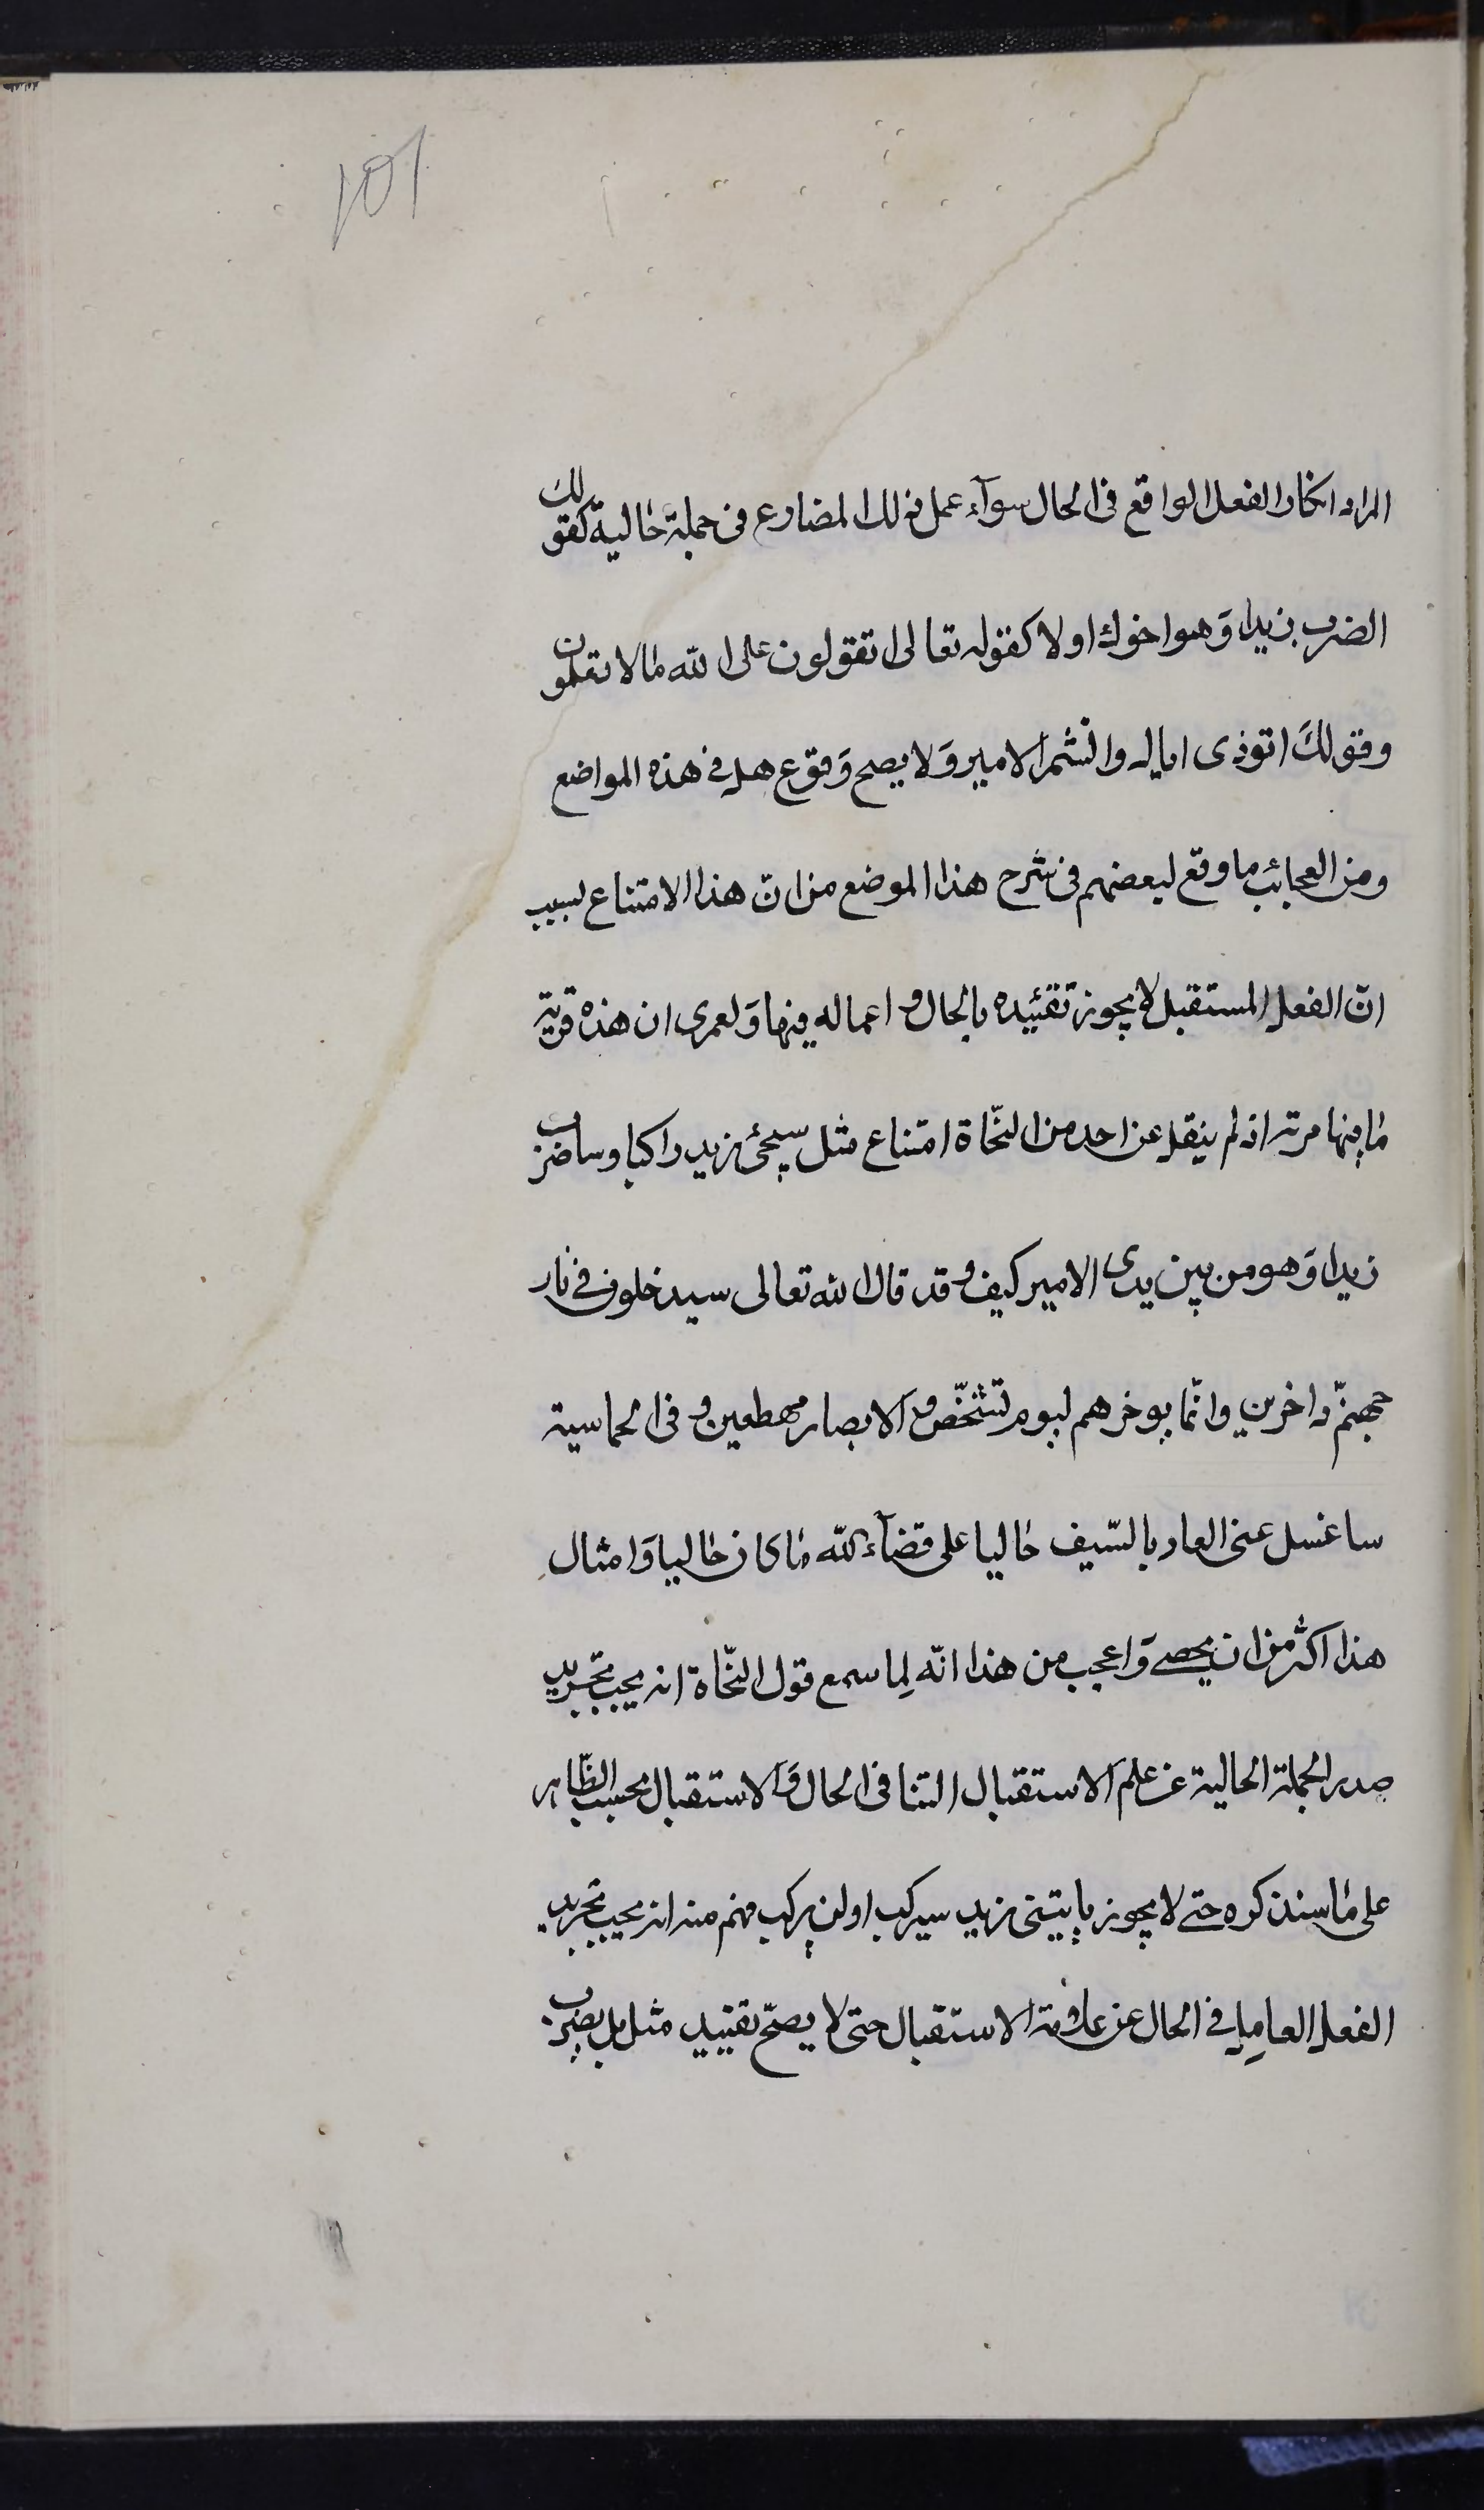 101
المراد انكار الفعل الواقع فى الحال سوآء عمل ذلك المضارع فى جملة حالية كقولك
اتضرب زيدا وَهو اخوك او لا كقوله تعالى اتقولون على الله ما لا تعلمون
وقولكَ اتوذى اباك واتشتم الامير وَلا يصح وَقوع هل فى هذه المواضع
ومن العجائب ما وقع لبعضهم فى شرح هذا الموضع من انّ هذا الامتناع لسبب
انّ الفعل المستقبل لا يجوز تقئيده بالحال و اعماله فيها وَلعمرى ان هذه فرية
ما فيها مرية اذ لم ينقل عن احد من النحّاة امتناع مثل سيجئ زيد راكبا وساضرب
زيدا وَهو من بين يدى الامير كيف و قد قال الله تعالى سيدخلون فى نار
جهنمّ داخرين وانّما يوخرهم ليوم تشخّص فيه الابصار مهطعين و فى الحماسية
ساغسل عنى العار بالسّيف جاليا على قضآء الله ما كان جاليا وَامثال
هذا اكثر من ان يحصى وَاعجب من هذا انّه لِما سمع قول النحّاة انه يجب تجريد
صدر الجملة الحالية عن علم الاستقبال التنافى الحال وَالاستقبال بحسب الظّاهر
على ما سنذكره حتى لا يجوز ياتينى زيد سيركب او لن يركب فهم منه انه يجب تجريد
الفعل العامل فى الحال عن علامة الاستقبال حتى لا يصحّ تقييد مثل هل يضرب